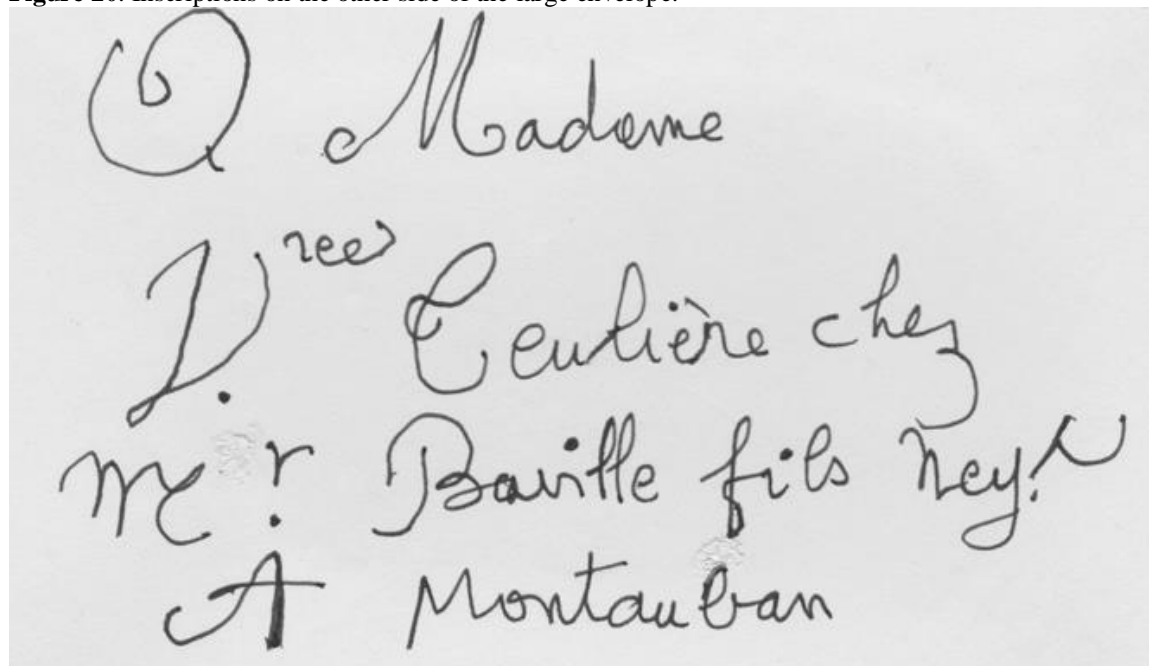 Figure 20. Inscriptions on the other side of the large envelope.
O Madame
V.ree Ceulière chez
Mr. Baville fils Ney.t
A Montauban